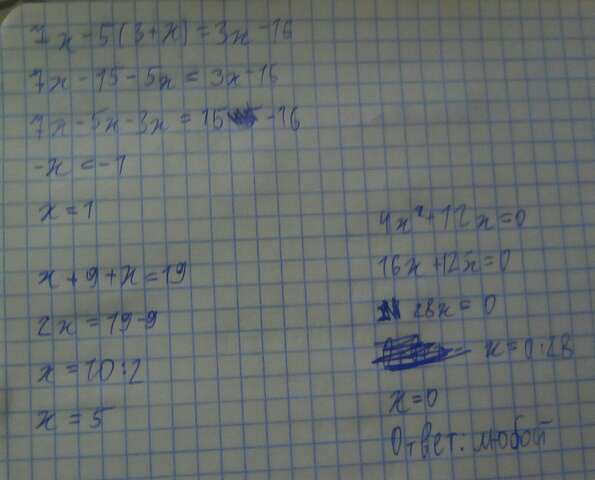 7x - 5(3+x) = 3x - 16
7x - 15 - 5x = 3x - 16
7x - 5x - 3x = 15 - 16
-x = -1
x = 1
x + 9 + x = 19
2x = 19 - 9
x = 10 : 2
x = 5
4x² + 12x = 0
16x + 12x = 0
28x = 0
x = 0 : 28
x = 0
Ответ: любой